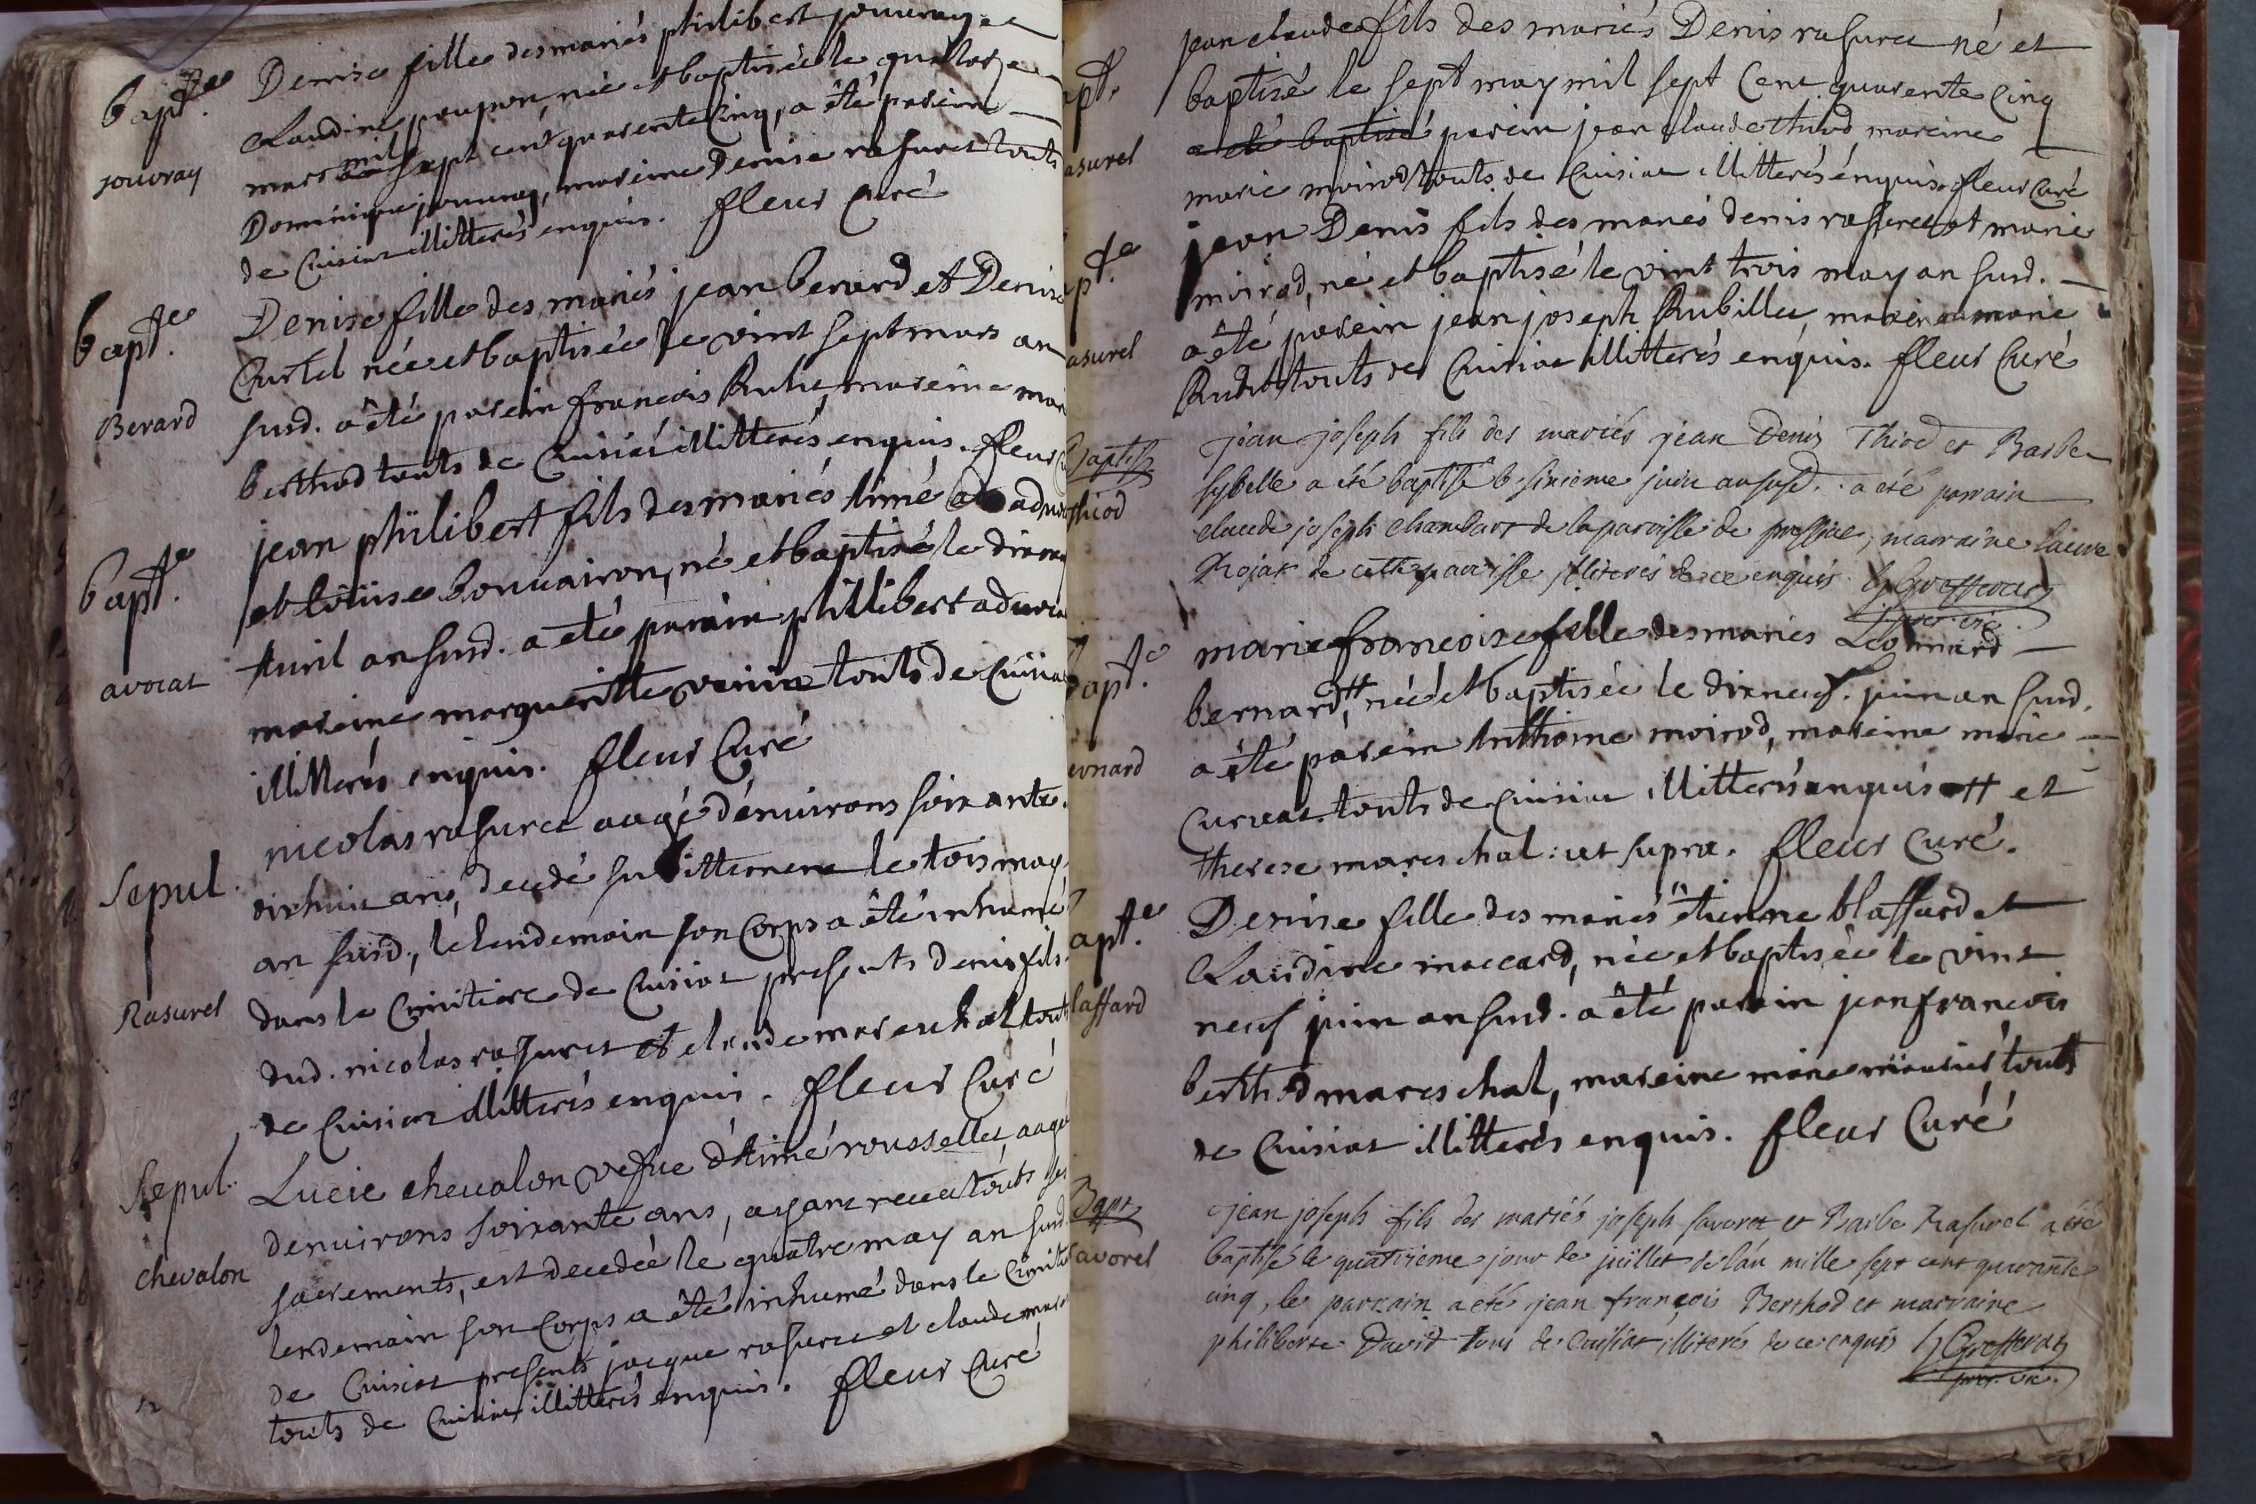 bapt.e
jouvray
Denise fille des mariés philibert jouvray et
Claudine poupon, née et baptisée le quatorze
mars mil sept cent quarente cinq, a êté parein
Dominique jouvray, mareine Denise rasurel touts
de Cuisiat illitterés enquis. fleur Curé
bapt.e
Berard
Denise fille des mariés jean berard et Denise
Curtel née et baptisée le vint sept mars an
susd. a êté parein francois Ruhe, mareine mari
berthod touts de Cuisiat illitterés enquis. fleur
bapt.e
avocat
jean philibert fils des mariés Aimé
et loüise bonvairon, né et baptisé le
Avril an susd. a eté parein phillibert
mareine margueritte touts de Cuisiat
illitterés enquis. fleur Curé
Sepul.
Rasurel
nicolas rasurel aagé d'environs soixante
dixhuit ans, decedé subittement le trois may
an susd., le lendemain son Corps a êté inhumé
dans le Cimitiere de Cuisiat presents denis fils
dud. nicolas rasurel et claude mareschal touts
de Cuisiat illitterés enquis. fleur Curé
Sepul.
chevalon
Lucie chevalon vefue d'Aimé rousselet, aagé
denvirons soixante ans, ayant receu touts ses
sacrements, est decedée le quatre may an susd.
lendemain son Corps a êté inhumé dans le Cimit
de Cuisiat presents jacque rasurel et claude mares
touts de Cuisiat illitterés enquis. fleur Curé
apt.e
asurel
jean claude fils des mariés Denis rasurel né et
baptisé le sept may mil sept Cent quarente Cinq
a eté baptisé parein jean claude thiod mareine
marie moirod touts de Cuisiat illitterés enquis. fleur Curé
apt.e
asurel
jean Denis fils des mariés denis rasurel et marie
moirod, né et baptisé le vint trois may an susd.
a êté parein jean joseph Rubillet, mareine marie
touts de Cuisiat illitterés enquis. fleur Curé
Baptis
thiod
jean joseph fils des mariés jean Denis Thiod et Barbe
sybelle a été baptisé le sixieme juin an susd. a été parrain
claude joseph chambart de la paroisse de pressiat, marraine laure
Rojat de cette paroisse illiterés de ce enquis. Greffierat
prer. vic.
bapt.e
ernard
marie francoise fille des mariés Leonnard
bernard #, née et baptisée le dixneuf. juin an susd.
a êté parein Anthoine moirod, mareine marie
Curvat touts de Cuisiat illitterés enquis # et
therese mareschal: ut supra. fleur Curé.
apt.e
laffard
Denise fille des mariés êtienne blaffard et
Claudine maccard, née et baptisée le vint
neuf juin an susd. a êté parein jean francois
berthod mareschal, mareine marie touts
de Cuisiat illitterés enquis. fleur Curé
Bapt
avorel
jean joseph fils des mariés joseph savorel et Barbe Rasurel a été
baptisé le quatrieme jour de juillet de l'an mille sept cent quarante
cinq, le parrain a été jean françois Berthod et marraine
philiberte David tous de Cuisiat illiterés de ce enquis Greffierat
prer. vic.